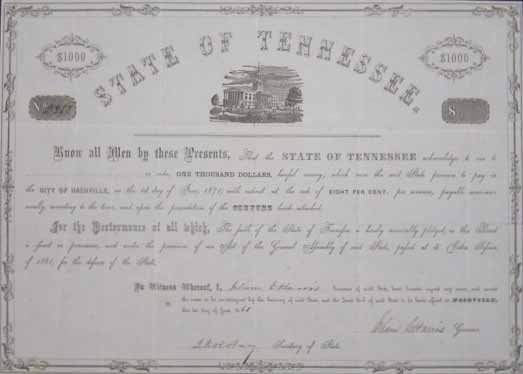 STATE OF TENNESSEE.
$1000
$1000
No
$
Know all Men by these Presents, That the STATE OF TENNESSEE acknowledges to owe to
or order, ONE THOUSAND DOLLARS, lawful money, which sum the said State promises to pay in
the CITY OF NASHVILLE, on the 1st day of with interest at the rate of EIGHT PER CENT. per annum, payable semi-an-
nually, according to the tenor, and upon the presentation of the COUPONS hereto attached.
For the Performance of all which, The faith of the State of Tennessee is hereby pledged, as this Bond
is issued in pursuance, and under the provisions of an Act of the General Assembly of said State, passed at its Session
of 1861, for the defense of the State.
In Witness Whereof, I, Governor of said State, have hereunto signed my name, and caused
the same to be countersigned by the Secretary of said State, and the Great Seal of said State to be hereto affixed at NASHVILLE,
this 1st day of
Isham G Harris Governor
Secretary of State